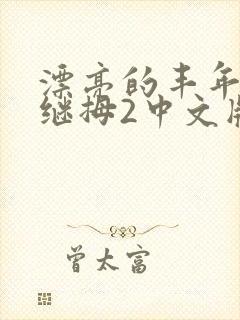 漂亮的丰年
继拇2中文版
曾太富